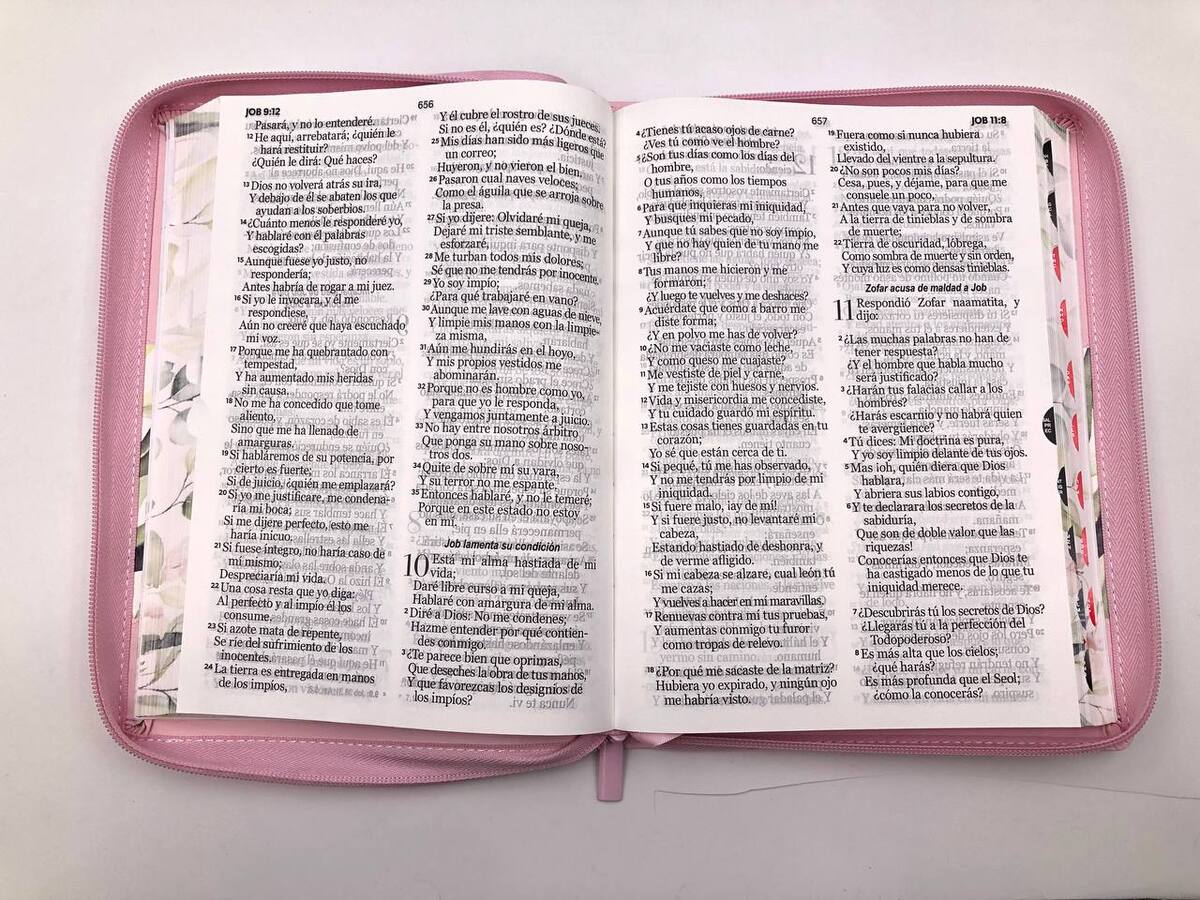 JOB 9:12
656
Pasará, y no lo entenderé.
12 He aquí, arrebatará; ¿quién le
hará restituir?
¿Quién le dirá: Qué haces?
13 Dios no volverá atrás su ira,
Y debajo de él se abaten los que
ayudan a los soberbios.
14 ¿Cuánto menos le responderé yo,
Y hablaré con él palabras
escogidas?
15 Aunque fuese yo justo, no
respondería;
Antes habría de rogar a mi juez.
16 Si yo le invocara, y él me
respondiese,
Aún no creeré que haya escuchado
mi voz.
17 Porque me ha quebrantado con
tempestad,
Y ha aumentado mis heridas
sin causa.
18 No me ha concedido que tome
aliento,
Sino que me ha llenado de
amarguras.
19 Si habláremos de su potencia, por
cierto es fuerte;
Si de juicio, ¿quién me emplazará?
20 Si yo me justificare, me condena-
ría mi boca;
Si me dijere perfecto, esto me
haría inicuo.
21 Si fuese íntegro, no haría caso de
mí mismo;
Despreciaría mi vida.
22 Una cosa resta que yo diga:
Al perfecto y al impío él los
consume.
23 Si azote mata de repente,
Se ríe del sufrimiento de los
inocentes.
24 La tierra es entregada en manos
de los impíos,
Y él cubre el rostro de sus jueces.
Si no es él, ¿quién es? ¿Dónde está?
25 Mis días han sido más ligeros que
un correo;
Huyeron, y no vieron el bien.
26 Pasaron cual naves veloces;
Como el águila que se arroja sobre
la presa.
27 Si yo dijere: Olvidaré mi queja,
Dejaré mi triste semblante, y me
esforzaré,
28 Me turban todos mis dolores;
Sé que no me tendrás por inocente.
29 Yo soy impío;
¿Para qué trabajaré en vano?
30 Aunque me lave con aguas de nieve,
Y limpie mis manos con la limpie-
za misma,
31 Aún me hundirás en el hoyo,
Y mis propios vestidos me
abominarán.
32 Porque no es hombre como yo,
para que yo le responda,
Y vengamos juntamente a juicio.
33 No hay entre nosotros árbitro
Que ponga su mano sobre noso-
tros dos.
34 Quite de sobre mí su vara,
Y su terror no me espante.
35 Entonces hablaré, y no le temeré;
Porque en este estado no estoy
en mí.
Job lamenta su condición
10 Está mi alma hastiada de mi
vida;
Daré libre curso a mi queja,
Hablaré con amargura de mi alma.
2 Diré a Dios: No me condenes;
Hazme entender por qué contien-
des conmigo.
3 ¿Te parece bien que oprimas,
Que deseches la obra de tus manos,
Y que favorezcas los designios de
los impíos?
657
JOB 11:8
4 ¿Tienes tú acaso ojos de carne?
¿Ves tú como ve el hombre?
5 ¿Son tus días como los días del
hombre,
O tus años como los tiempos
humanos,
6 Para que inquieras mi iniquidad,
Y busques mi pecado,
7 Aunque tú sabes que no soy impío,
Y que no hay quien de tu mano me
libre?
8 Tus manos me hicieron y me
formaron;
¿Y luego te vuelves y me deshaces?
9 Acuérdate que como a barro me
diste forma;
¿Y en polvo me has de volver?
10 ¿No me vaciaste como leche,
Y como queso me cuajaste?
11 Me vestiste de piel y carne,
Y me tejiste con huesos y nervios.
12 Vida y misericordia me concediste,
Y tu cuidado guardó mi espíritu.
13 Estas cosas tienes guardadas en tu
corazón;
Yo sé que están cerca de ti.
14 Si pequé, tú me has observado,
Y no me tendrás por limpio de mi
iniquidad.
15 Si fuere malo, ¡ay de mí!
Y si fuere justo, no levantaré mi
cabeza,
Estando hastiado de deshonra, y
de verme afligido.
16 Si mi cabeza se alzare, cual león tú
me cazas;
Y vuelves a hacer en mí maravillas.
17 Renuevas contra mí tus pruebas,
Y aumentas conmigo tu furor
como tropas de relevo.
18 ¿Por qué me sacaste de la matriz?
Hubiera yo expirado, y ningún ojo
me habría visto.
19 Fuera como si nunca hubiera
existido,
Llevado del vientre a la sepultura.
20 ¿No son pocos mis días?
Cesa, pues, y déjame, para que me
consuele un poco,
21 Antes que vaya para no volver,
A la tierra de tinieblas y de sombra
de muerte;
22 Tierra de oscuridad, lóbrega,
Como sombra de muerte y sin orden,
Y cuya luz es como densas tinieblas.
Zofar acusa de maldad a Job
11 Respondió Zofar naamatita, y
dijo:
2 ¿Las muchas palabras no han de
tener respuesta?
¿Y el hombre que habla mucho
será justificado?
3 ¿Harán tus falacias callar a los
hombres?
¿Harás escarnio y no habrá quien
te avergüence?
4 Tú dices: Mi doctrina es pura,
Y yo soy limpio delante de tus ojos.
5 Mas ¡oh, quién diera que Dios
hablara,
Y abriera sus labios contigo,
6 Y te declarara los secretos de la
sabiduría,
Que son de doble valor que las
riquezas!
Conocerías entonces que Dios te
ha castigado menos de lo que tu
iniquidad merece.
7 ¿Descubrirás tú los secretos de Dios?
¿Llegarás tú a la perfección del
Todopoderoso?
8 Es más alta que los cielos;
¿qué harás?
Es más profunda que el Seol;
¿cómo la conocerás?